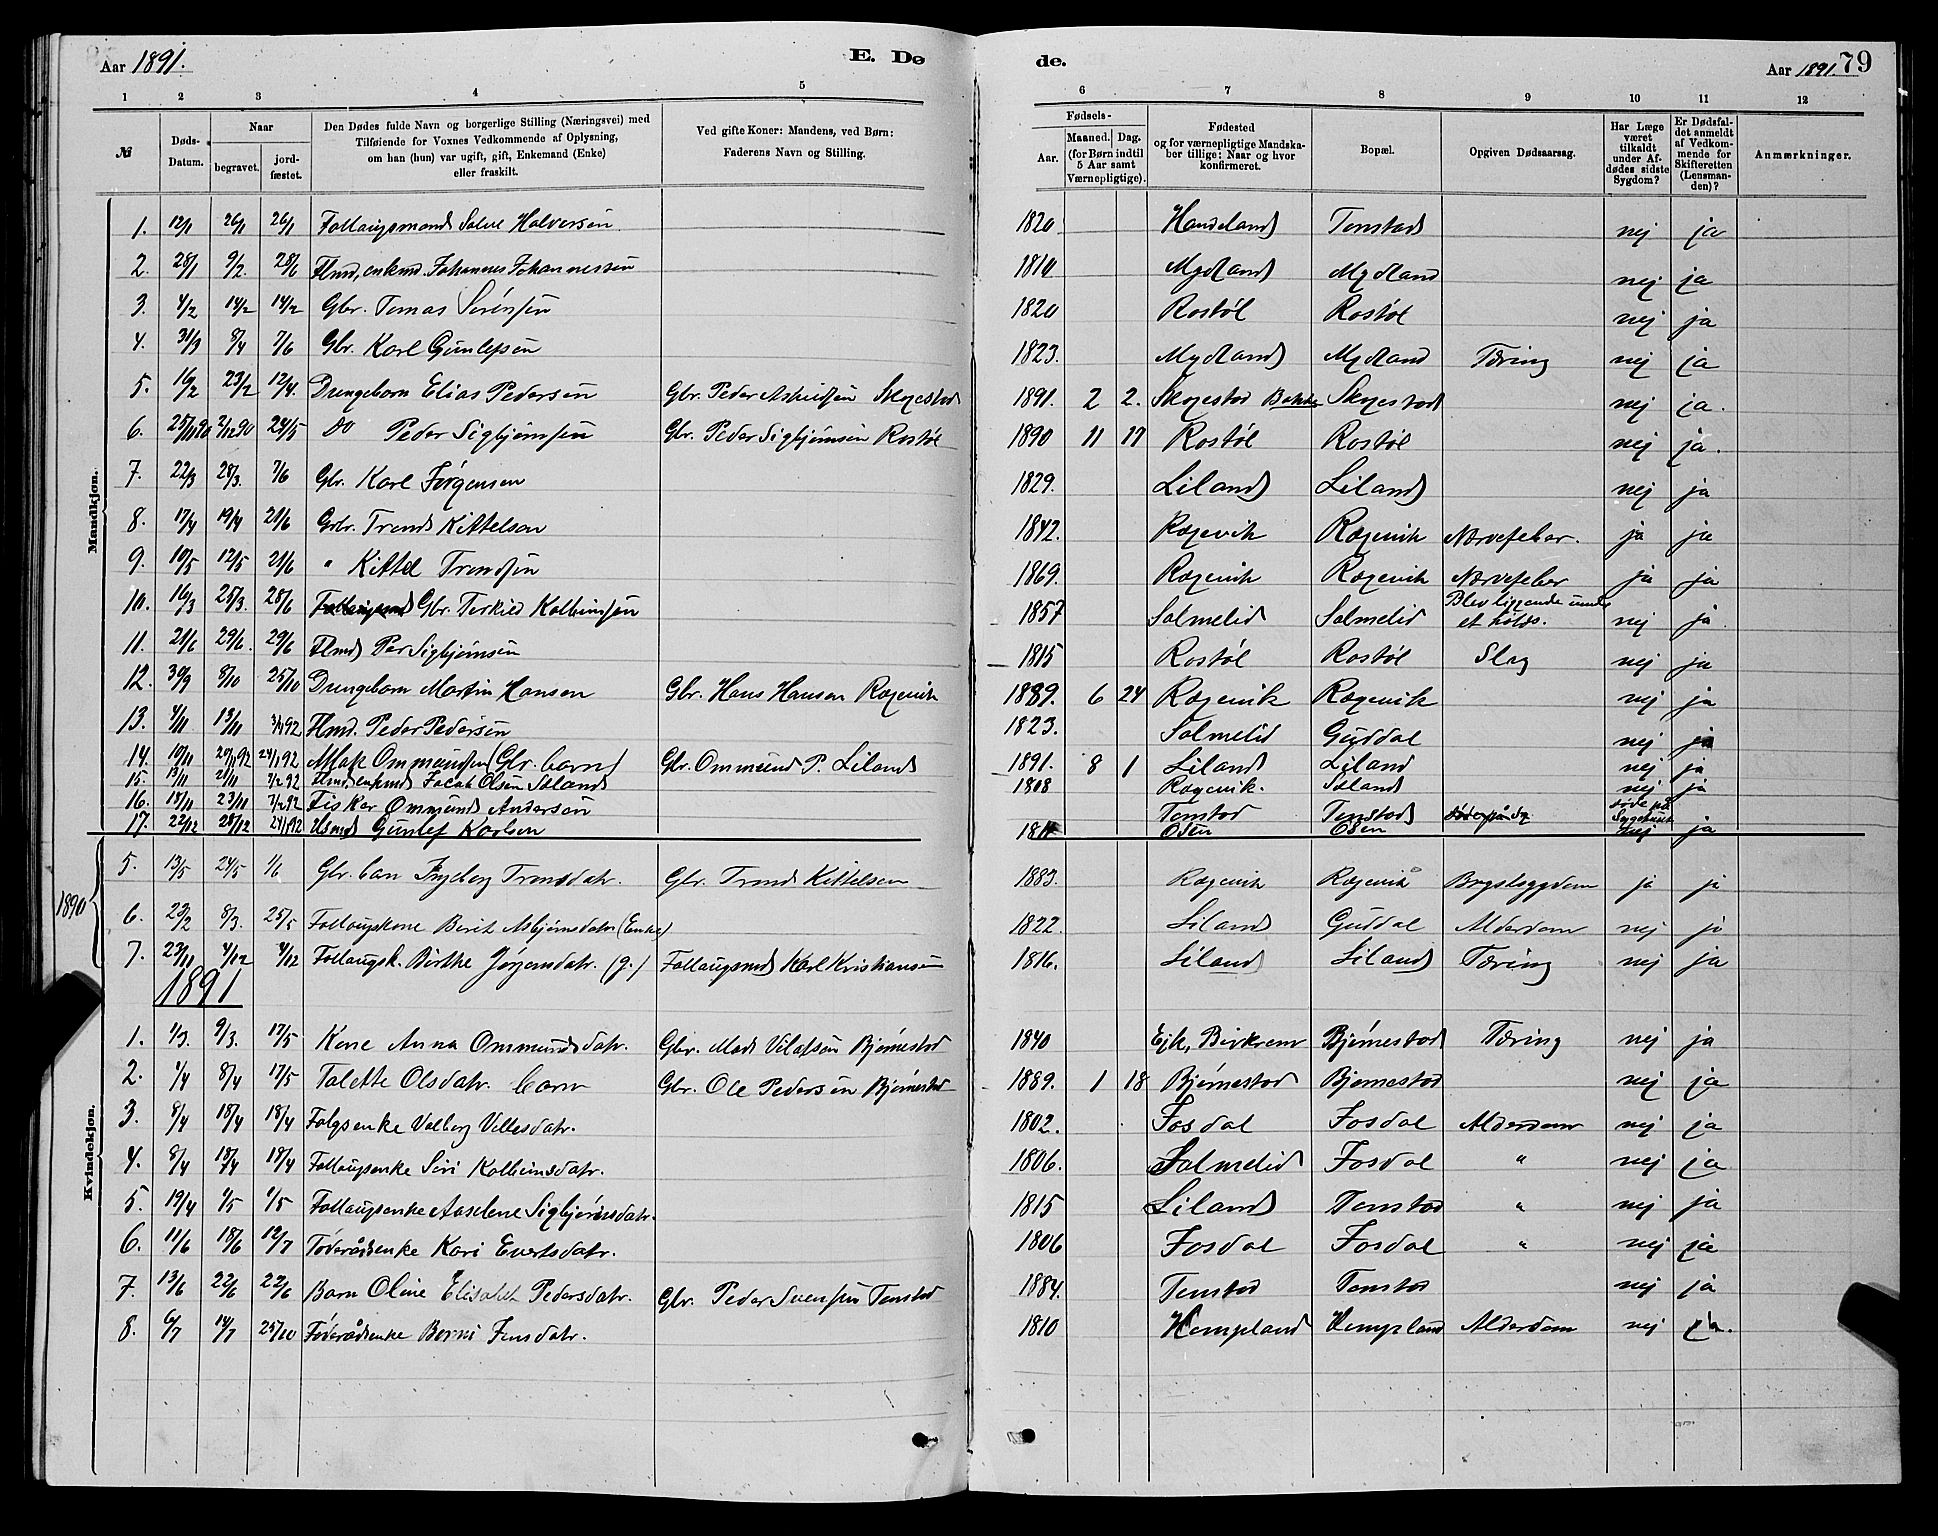 Aar 1891. E. Dø de. Aar 1891. 79
1 2 3 4 5 6 7 8 9 10 11 12
№ Døds-Datum. Naar begravet. jordfæstet. Den Dødes fulde Navn og borgerlige Stilling (Næringsvei) med Tilføiende for Voxnes Vedkommende af Oplysning, om han (hun) var ugift, gift, Enkemand (Enke) eller fraskilt. Ved gifte Koner: Mandens, ved Børn: Faderens Navn og Stilling. Fødsels- Aar. Maaned. Dag. (for Børn indtil 5 Aar samt Værnepligtige). Fødested og for værnepligtige Mandskaber tillige: Naar og hvor konfirmeret. Bopæl. Opgiven Dødsaarsag. Har Læge været tilkaldt under Afdødes sidste Sygdom? Er Dødsfaldet anmeldt af Vedkommende for Skifteretten (Lensmanden)? Anmærkninger.
Mandkjøn.
1. 12/1 26/1 26/1 Follaugsmand Salve Halversen 1820 Handeland Tonstad nej ja
2. 28/1 9/2. 28/6 Flmd, enkmd. Johannes Johannessen 1810 Mydland Mydland nej ja
3. 4/2 14/2 14/2 Gbr. Tomas Sørensen 1820 Rostøl Rostøl nej ja
4. 31/3 8/4 7/6 Gbr. Karl Gunlefsen 1823. Mydland Mydland Tæring nej ja
5. 16/2 23/2 12/4. Drengebarn Elias Pedersen Gbr. Peder Askildsen Skogestad 1891. 2 2. Skogestad Bakke Skogestad nej ja.
6. 25/11 90 2/12 90 24/5 Do Peder Sigbjørnsen Gbr. Peder Sigbjørnsen Rostøl 1890 11 17 Rostøl Rostøl nej ja.
7. 22/3 28/3. 7/6 Gbr. Karl Jørgensen 1829. Liland Liland nej ja
8. 17/4 19/4 21/6 Gbr. Trond Kittelsen 1842. Rægevik Rægevik Nervefeber. ja ja
9. 10/5 12/5 21/6 " Kittel Trondsen 1869. Rægevik Rægevik Nervefeber ja ja
10. 16/3 25/3. 28/6 Gbr. Terkild Kolbensen 1857 Salmelid Salmelid Blev liggende under et holds. nej ja
11. 21/6 29/6. 29/6 Flmd Per Sigbjørnsen 1815 Rostøl Rostøl Slag nej ja
12. 30/9 8/10 25/10 Drengebarn Martin Hansen Gbr. Hans Hansen Rægevik 1889. 6 24 Rægevik Rægevik nej ja
13. 4/11 13/11 3/1 92 Flmd. Peder Pedersen 1823. Salmelid Guddal nej ja
14. 10/11 24/1 92 Aslak Ommundsen (Gbr. barn) Gbr. Ommund P. Liland 1891. 8 1 Liland Liland nej ja
15. 13/11 21/11 7/2 92 Flmd, enkmd Jacob Olsen Sæland 1808 Rægevik. Sæland nej ja
16. 18/11 23/11 7/2 92 Fisker Ommund Andersen Tonstad Tonstad døde på Sygehuset
17. 22/12 28/12 24/1 92 Husmd Gunlef Karlsen Osen Osen nej ja
1890
5. 13/5 24/5 1/6 Gbr. barn Ingeborg Tronsdatr. Gbr. Trond Kittelsen 1883. Rægevik Rægevik Brystsygdom ja ja
6. 23/2 8/3. 25/5 Follaugskone Berit Asbjørnsdatr (Enke) 1822. Liland Guddal Alderdom nej ja
7. 23/11 4/12 4/12 Follaugsk. Birthe Jørgensdatr. (g.) Follaugsmd Karl Kristiansen 1816. Liland Liland Tæring nej ja
1891
Kvindekjøn.
1. 1/3. 9/3. 17/5 Kone Anna Ommundsdatr. Gbr. Mads Vilafsen Bjørnestad 1840 Ejk, Birkrem Bjørnestad Tæring nej ja
2. 1/4 8/4 17/5 Talette Olsdatr. barn Gbr. Ole Pedersen Bjørnestad 1889. 1 18 Bjørnestad Bjørnestad nej ja
3. 8/4 18/4 18/4 Folgsenke Valborg Villesdatr. 1802. Josdal Josdal Alderdom nej ja
4. 8/4 18/4 18/4 Follaugsenke Siri Kolbensdatr. 1806. Salmelid Josdal " nej ja
5. 19/4 1/5 1/5 Follaugsenke Aaselene Sigbjørnsdatr. 1815 Liland Tonstad " nej ja
6. 11/6 18/6 12/7 Føderådsenke Kari Evertsdatr. 1806 Josdal Josdal " nej ja
7. 13/6 22/6 22/6 Barn Oline Elisabet Pedersdatr. Gbr. Peder Svensen Tonstad 1884. Tonstad Tonstad nej ja
8. 6/7 14/7 25/10 Føderådsenke Berni Jensdatr. 1810 Hompland Hompland Alderdom nej ja.